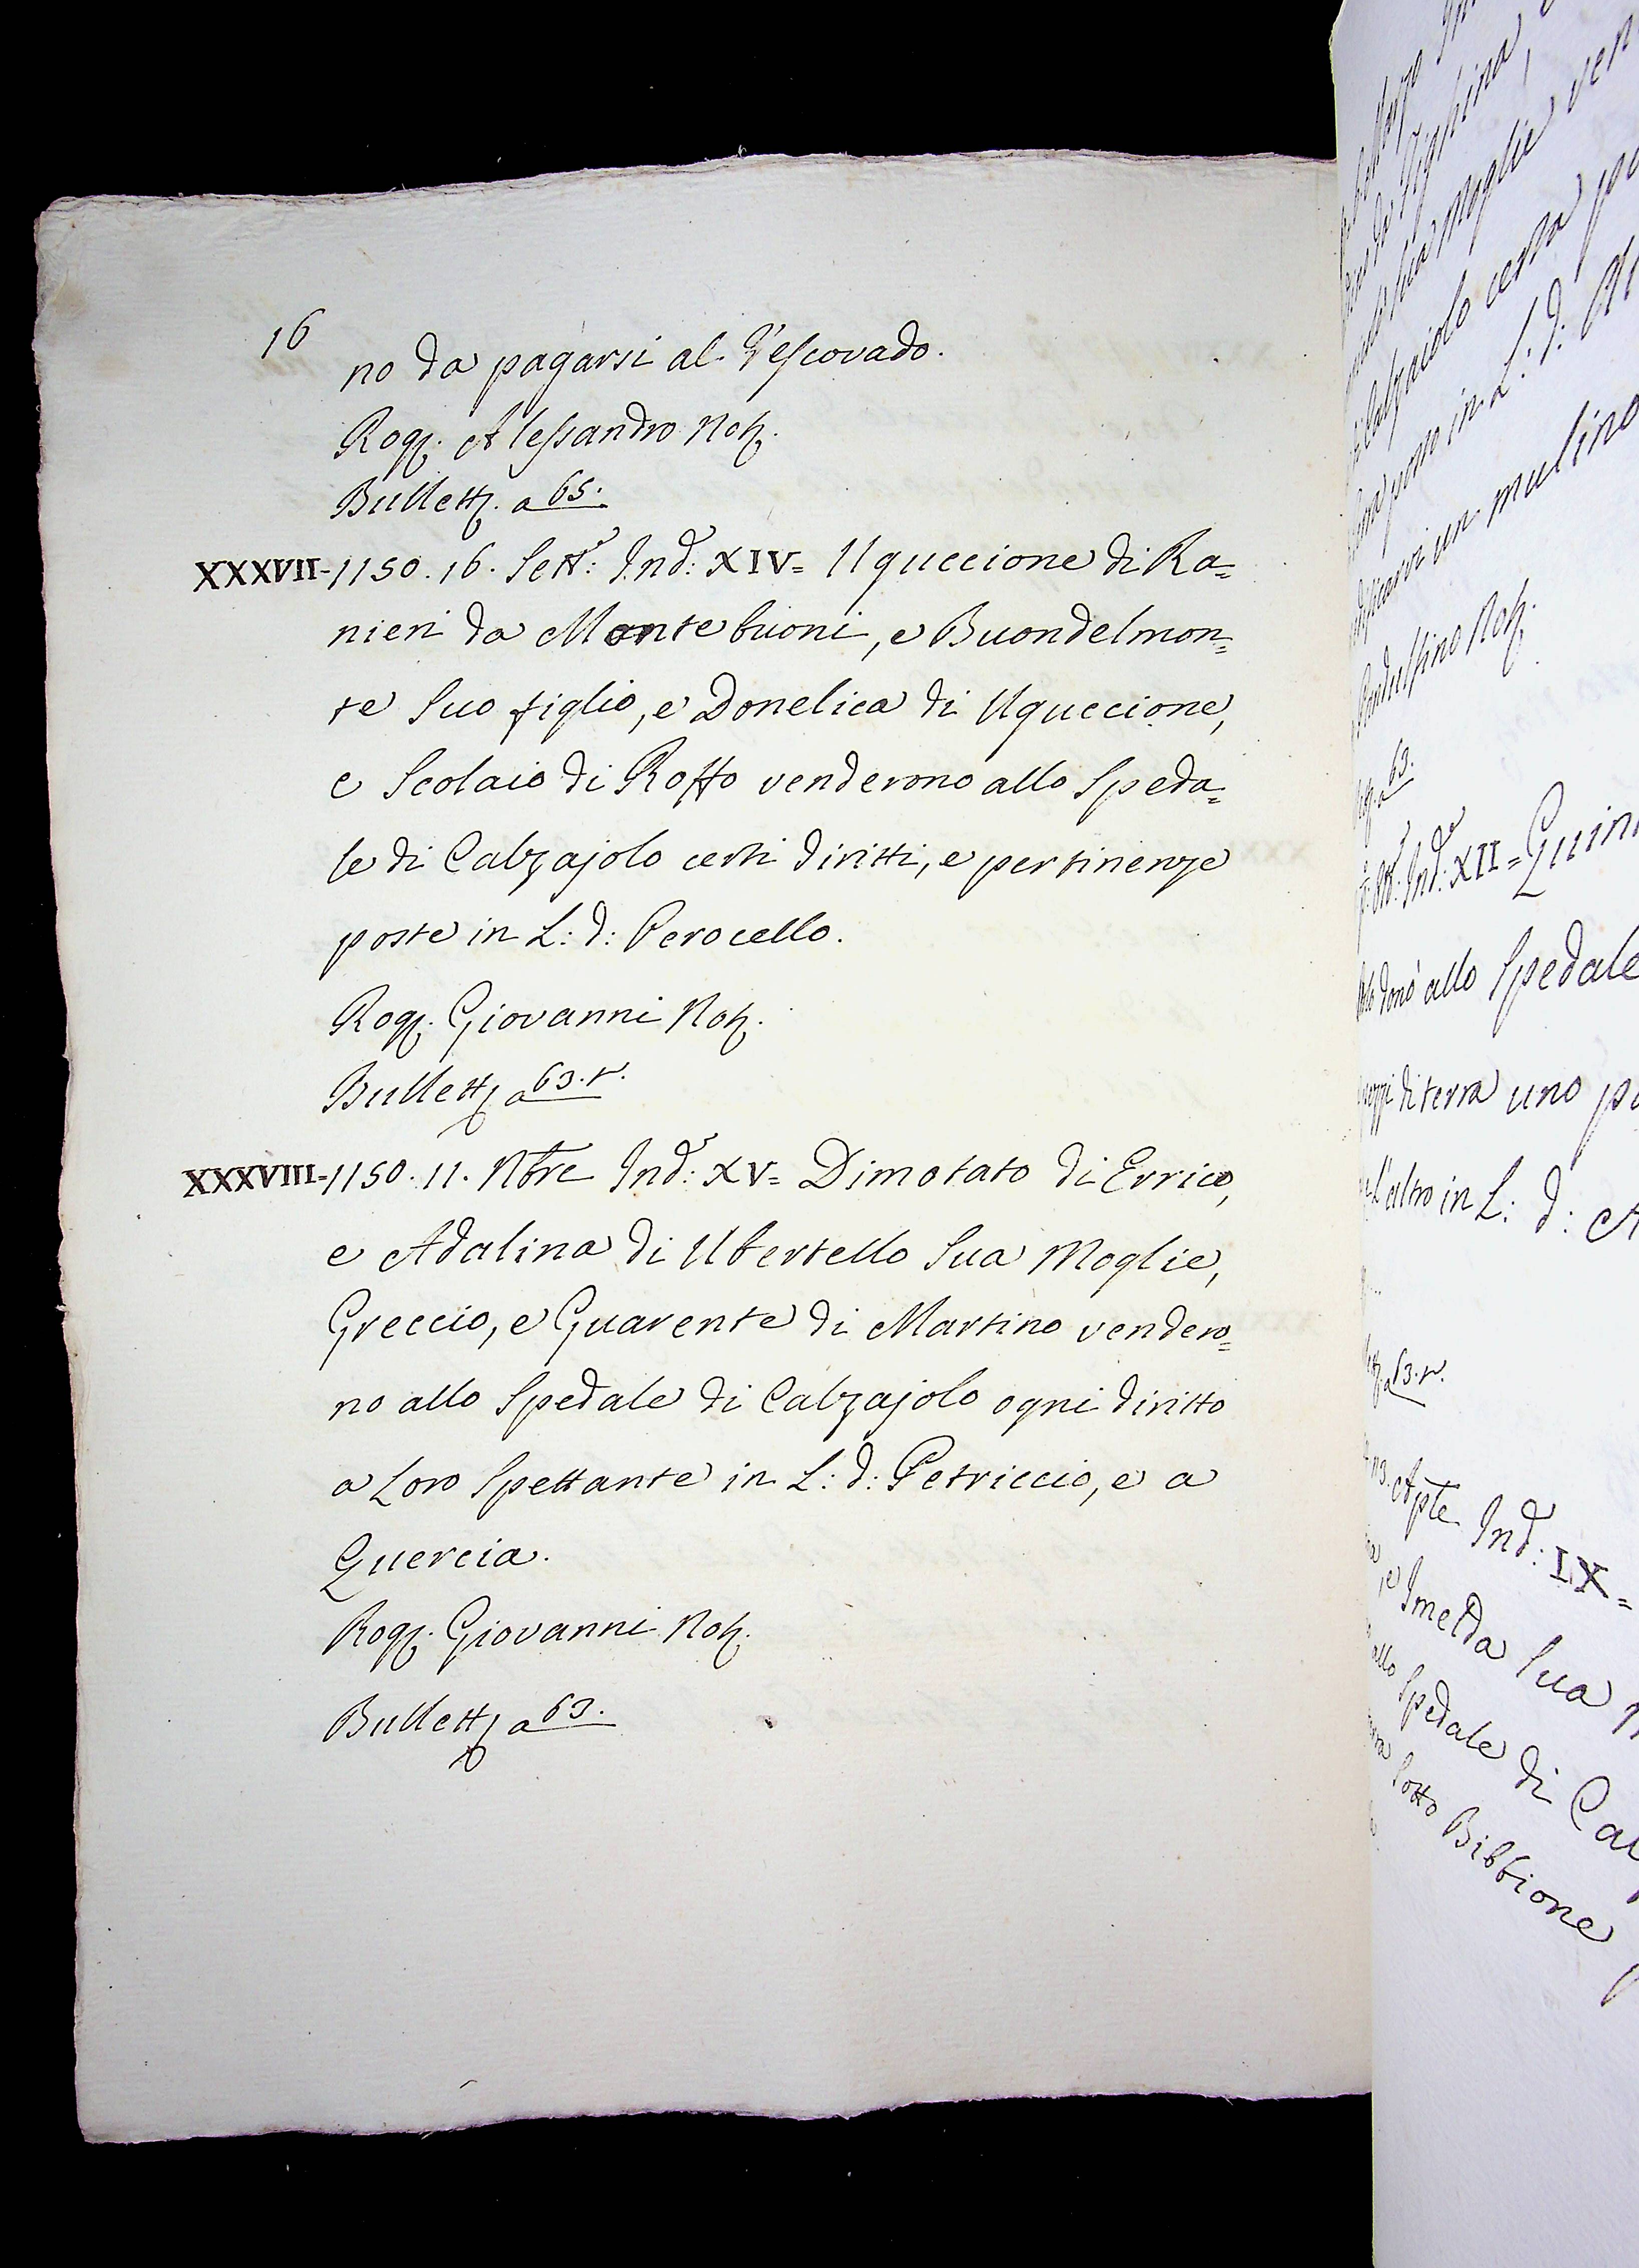 16
no da pagarsi al Vescovado.
Rog. Alessandro Not.
Bullett. a 65.
XXXVII-1150. 16. Sett.e: Ind.e: XIV= Uguccione di Ra=
nieri da Montebuoni, e Buondelmon=
te Suo figlio, e Donelica di Uguccione,
e Scolaio di Roffo venderono allo Speda=
le di Calzajolo certi diritti, e pertinenze
poste in L: d: Perocello.
Rog. Giovanni Not.
Bullett a 63.t.
XXXVIII=1150. 11. Nbre Ind.e: XV= Dimotato di Errico,
e Adalina di Ubertello Sua Moglie,
Greccio, e Guarente di Martino vendero=
no allo Spedale di Calzajolo ogni diritto
a Loro Spettante in L: d: Petriccio, e a
Quercia.
Rog. Giovanni Not.
Bullett a 63.
Moglie
Calzaiolo certa
in L: d:
un mulino
Not.
63.
Ind.e: XII=
donò allo Spedale
di terra uno
l'altro in L: d:
63.t.
Aple Ind.e: IX=
e Imelda Sua
allo Spedale di
Sotto Bibbione